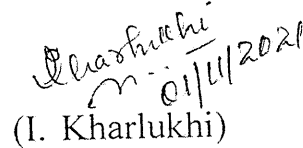 Kharlukhi
01/11/2021
(I. Kharlukhi)